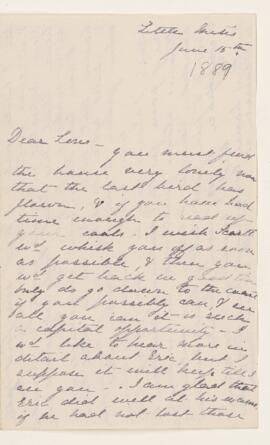 Little Metis
June 15th
1889
Dear Love -
You must find
the house very lonely now
that the last bird has
flown, & if you have had
time enough to
cools. I wish
wd whisk you off as soon
as possible, & then you
wd get back in
only do go down to the
if you possibly can, & see
all you can it is such
a capital opportunity - I
wd like to hear more in
detail about Eric, but I
suppose it will keep till I
see you - . I am glad that
Eric did well at his exams
if he had not lost those